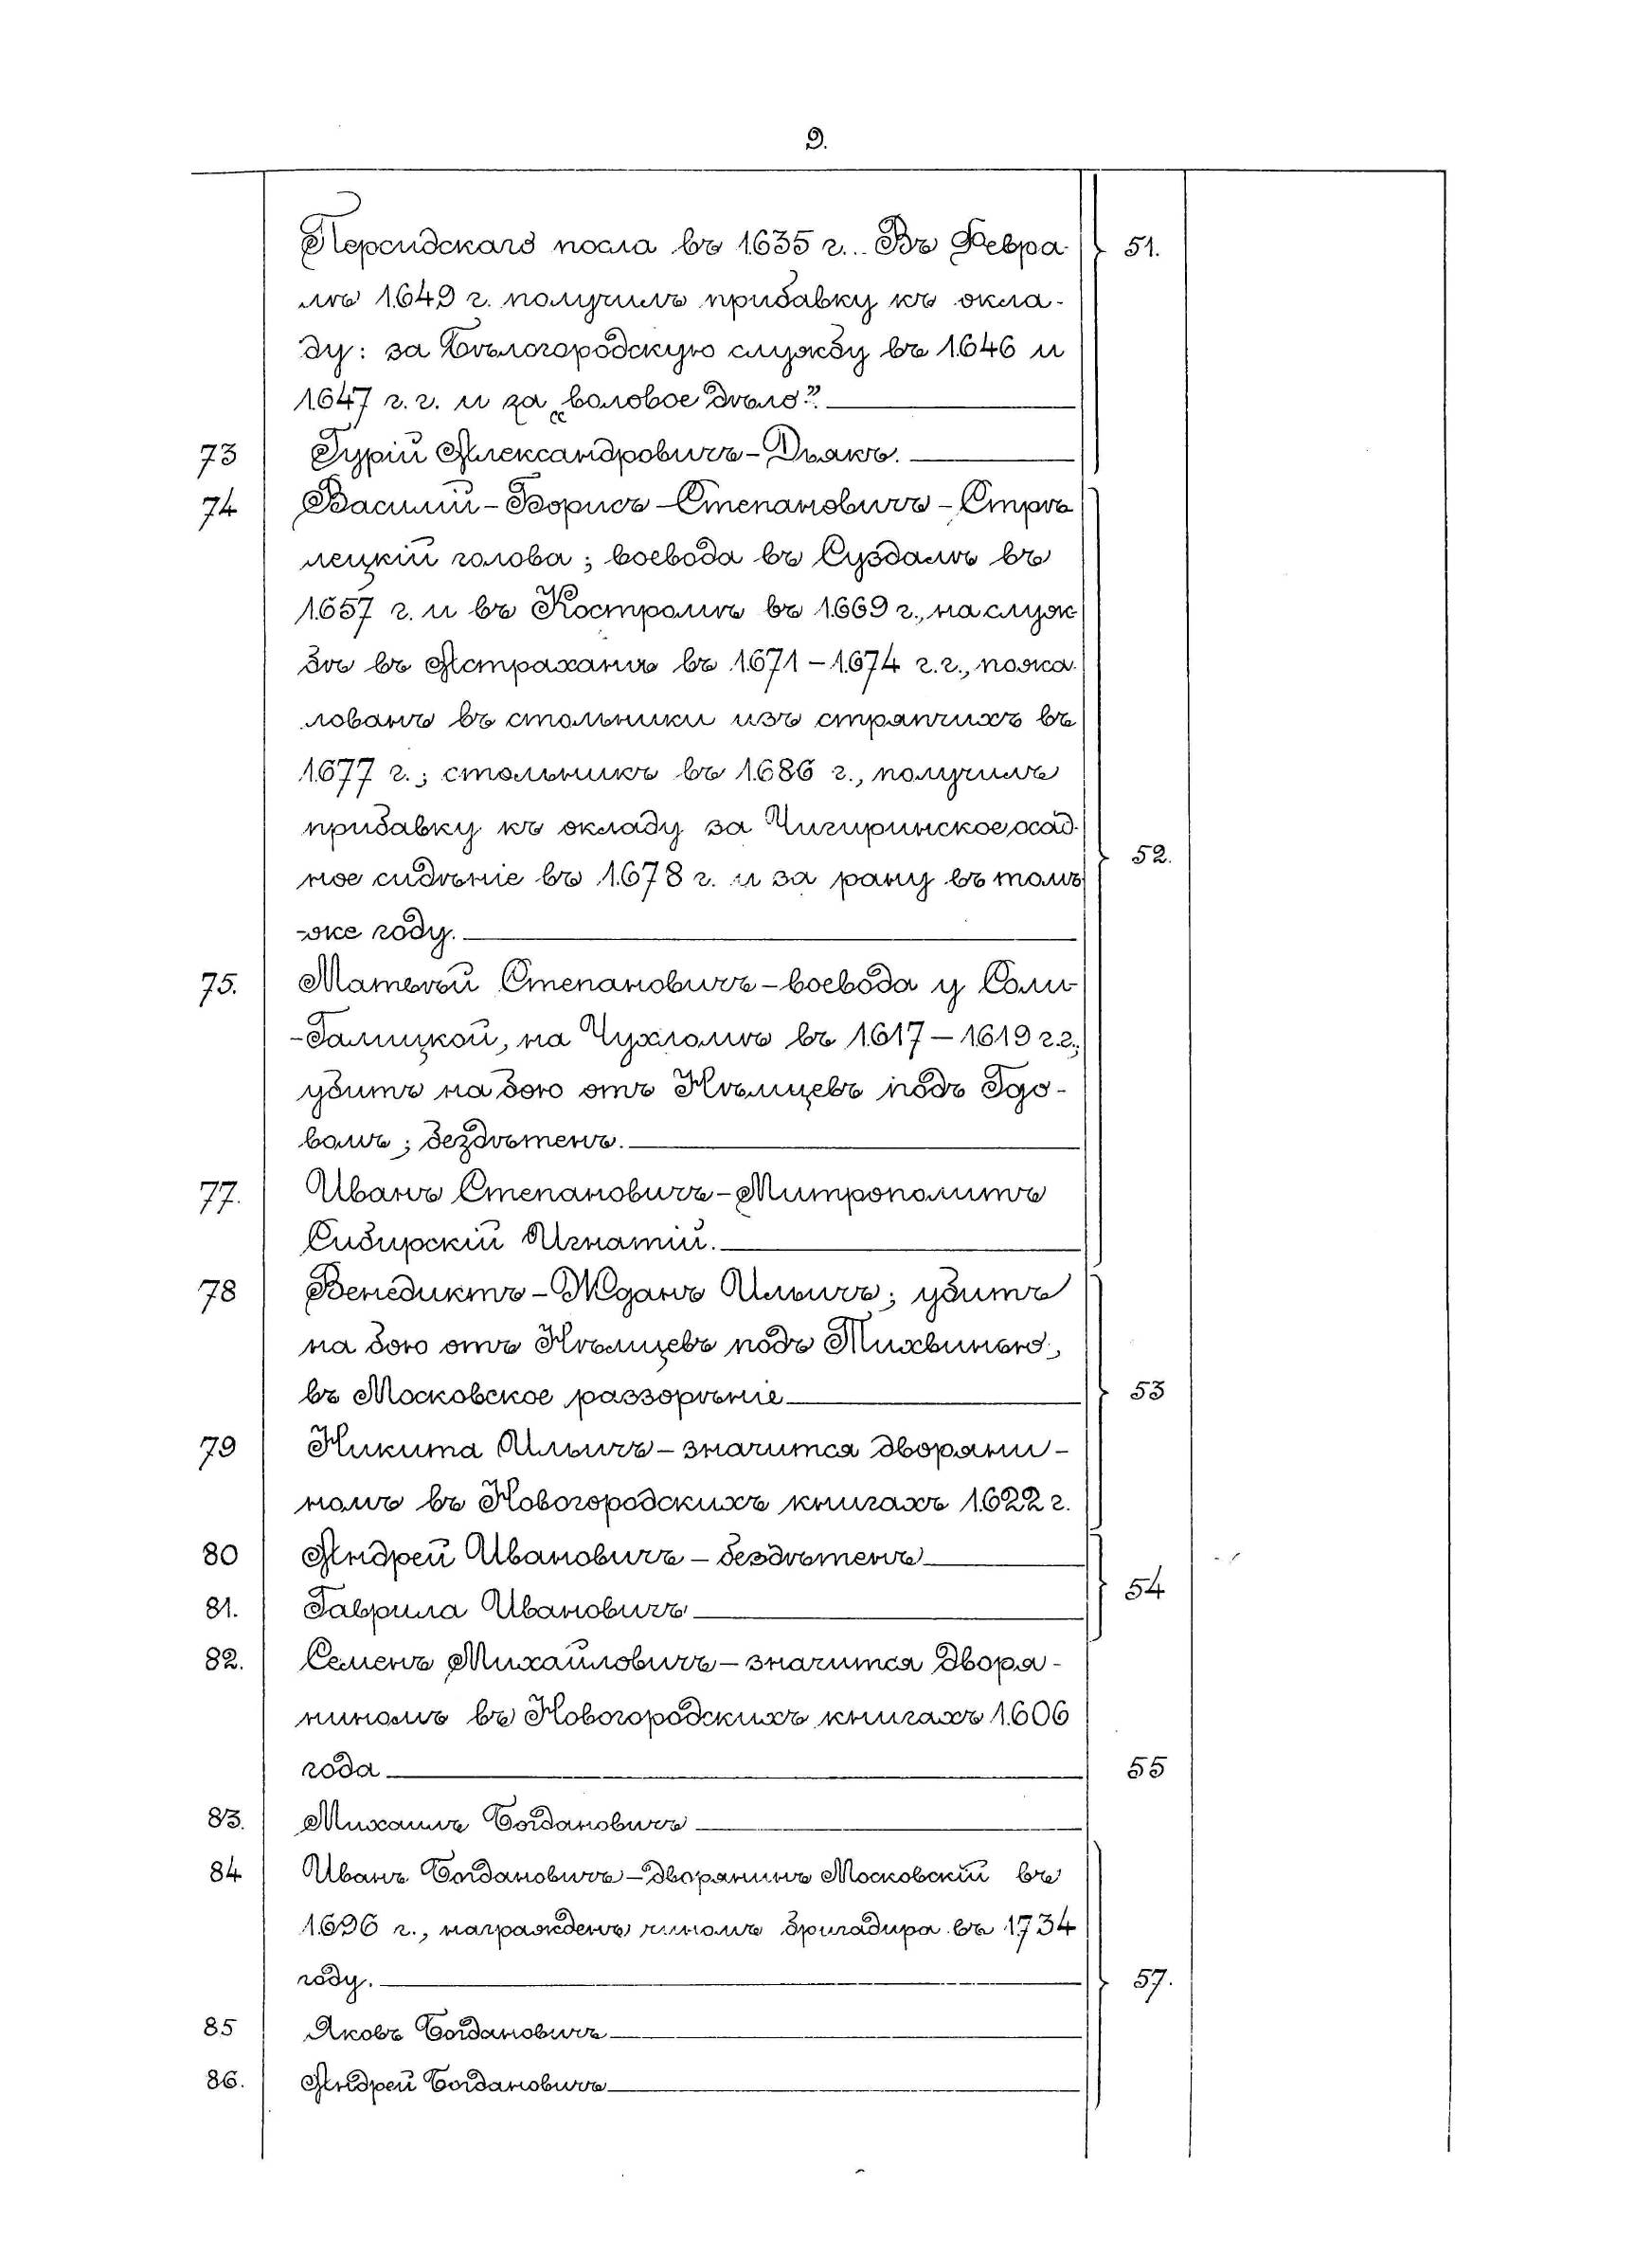 9.
Персидскаго посла въ 1635 г... Въ Февра- 51.
лѣ 1649 г. получилъ прибавку къ окла-
ду: за Бѣлогородскую службу въ 1646 и
1647 г.г. и за „воловое дѣло".
73 Гурій Александровичъ-Дьякъ.
74 Василій-Борисъ-Степановичъ-Стрѣ
лецкій голова; воевода въ Суздалѣ въ
1657 г. и въ Костромѣ въ 1669 г., на служ-
бѣ въ Астрахани въ 1671-1674 г.г., пожа-
лованъ въ стольники изъ стряпчихъ въ
1677 г.; стольникъ въ 1686 г., получилъ
прибавку къ окладу за Чигиринское осад-
52.
ное сидѣніе въ 1678 г. и за рану въ томъ
-же году.
75. Матвѣй Степановичъ-воевода у Соли-
-Галицкой, на Чухломѣ въ 1617-1619 г.г.;
убитъ на бою отъ Нѣмцевъ подъ Гдо-
вомъ; бездѣтенъ.
77. Иванъ Степановичъ-Митрополитъ
Сибирскій Игнатій.
78 Венедиктъ-Жданъ Ильичъ; убитъ
на бою отъ Нѣмцевъ подъ Тихвиномъ,
въ Московское раззорѣніе 53
79 Никита Ильичъ-значится дворяни-
номъ въ Новогородскихъ книгахъ 1622 г.
80 Андрей Ивановичъ-бездѣтенъ
54
81. Гаврила Ивановичъ
82. Семенъ Михайловичъ-значится дворя-
ниномъ въ Новогородскихъ книгахъ 1606
года 55
83. Михаилъ Богдановичъ
84 Иванъ Богдановичъ-дворянинъ Московскій въ
1696 г., награжденъ чиномъ бригадира въ 1734
году. 57.
85 Яковъ Богдановичъ
86. Андрей Богдановичъ